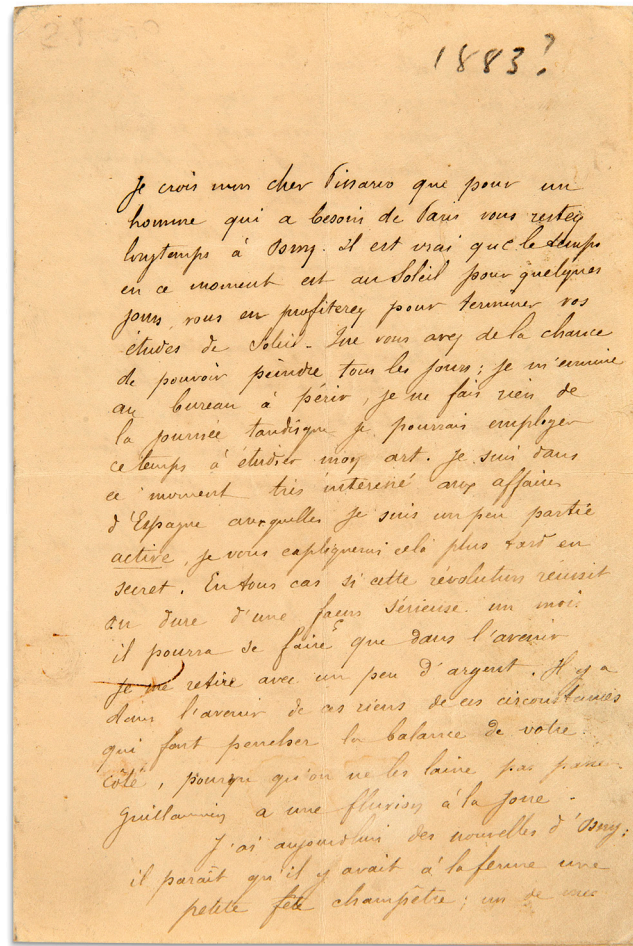 1883?
Je crois mon cher Pissarro que pour un
homme qui a besoin de Paris vous restez
longtemps à Osny. Il est vrai que le temps
en ce moment est au Soleil pour quelques
jours, vous en profiterez pour terminer vos
études de Soleil - Que vous avez de la chance
de pouvoir peindre tous les jours ; je m'ennuie
au bureau à périr, je ne fais rien de
la journée tandisque je pourrais employer
ce temps à étudier mon art. Je suis dans
ce moment très intéressé aux affaires
d'Espagne auxquelles je suis un peu partie
active, je vous expliquerai celà plus tard en
secret. En tous cas si cette révolution réussit
ou dure d'une façon sérieuse un mois
il pourra se faire que dans l'avenir
je me retire avec un peu d'argent. Il y a
dans l'avenir de ces riens de ces circonstances
qui font pencher la balance de votre
côté, pourvu qu'on ne les laisse pas passer.
Guillaumin a une fluxion à la joue.
J'ai aujourd'hui des nouvelles d'Osny :
il paraît qu'il y avait à la ferme une
petite fête champêtre ; un de mes